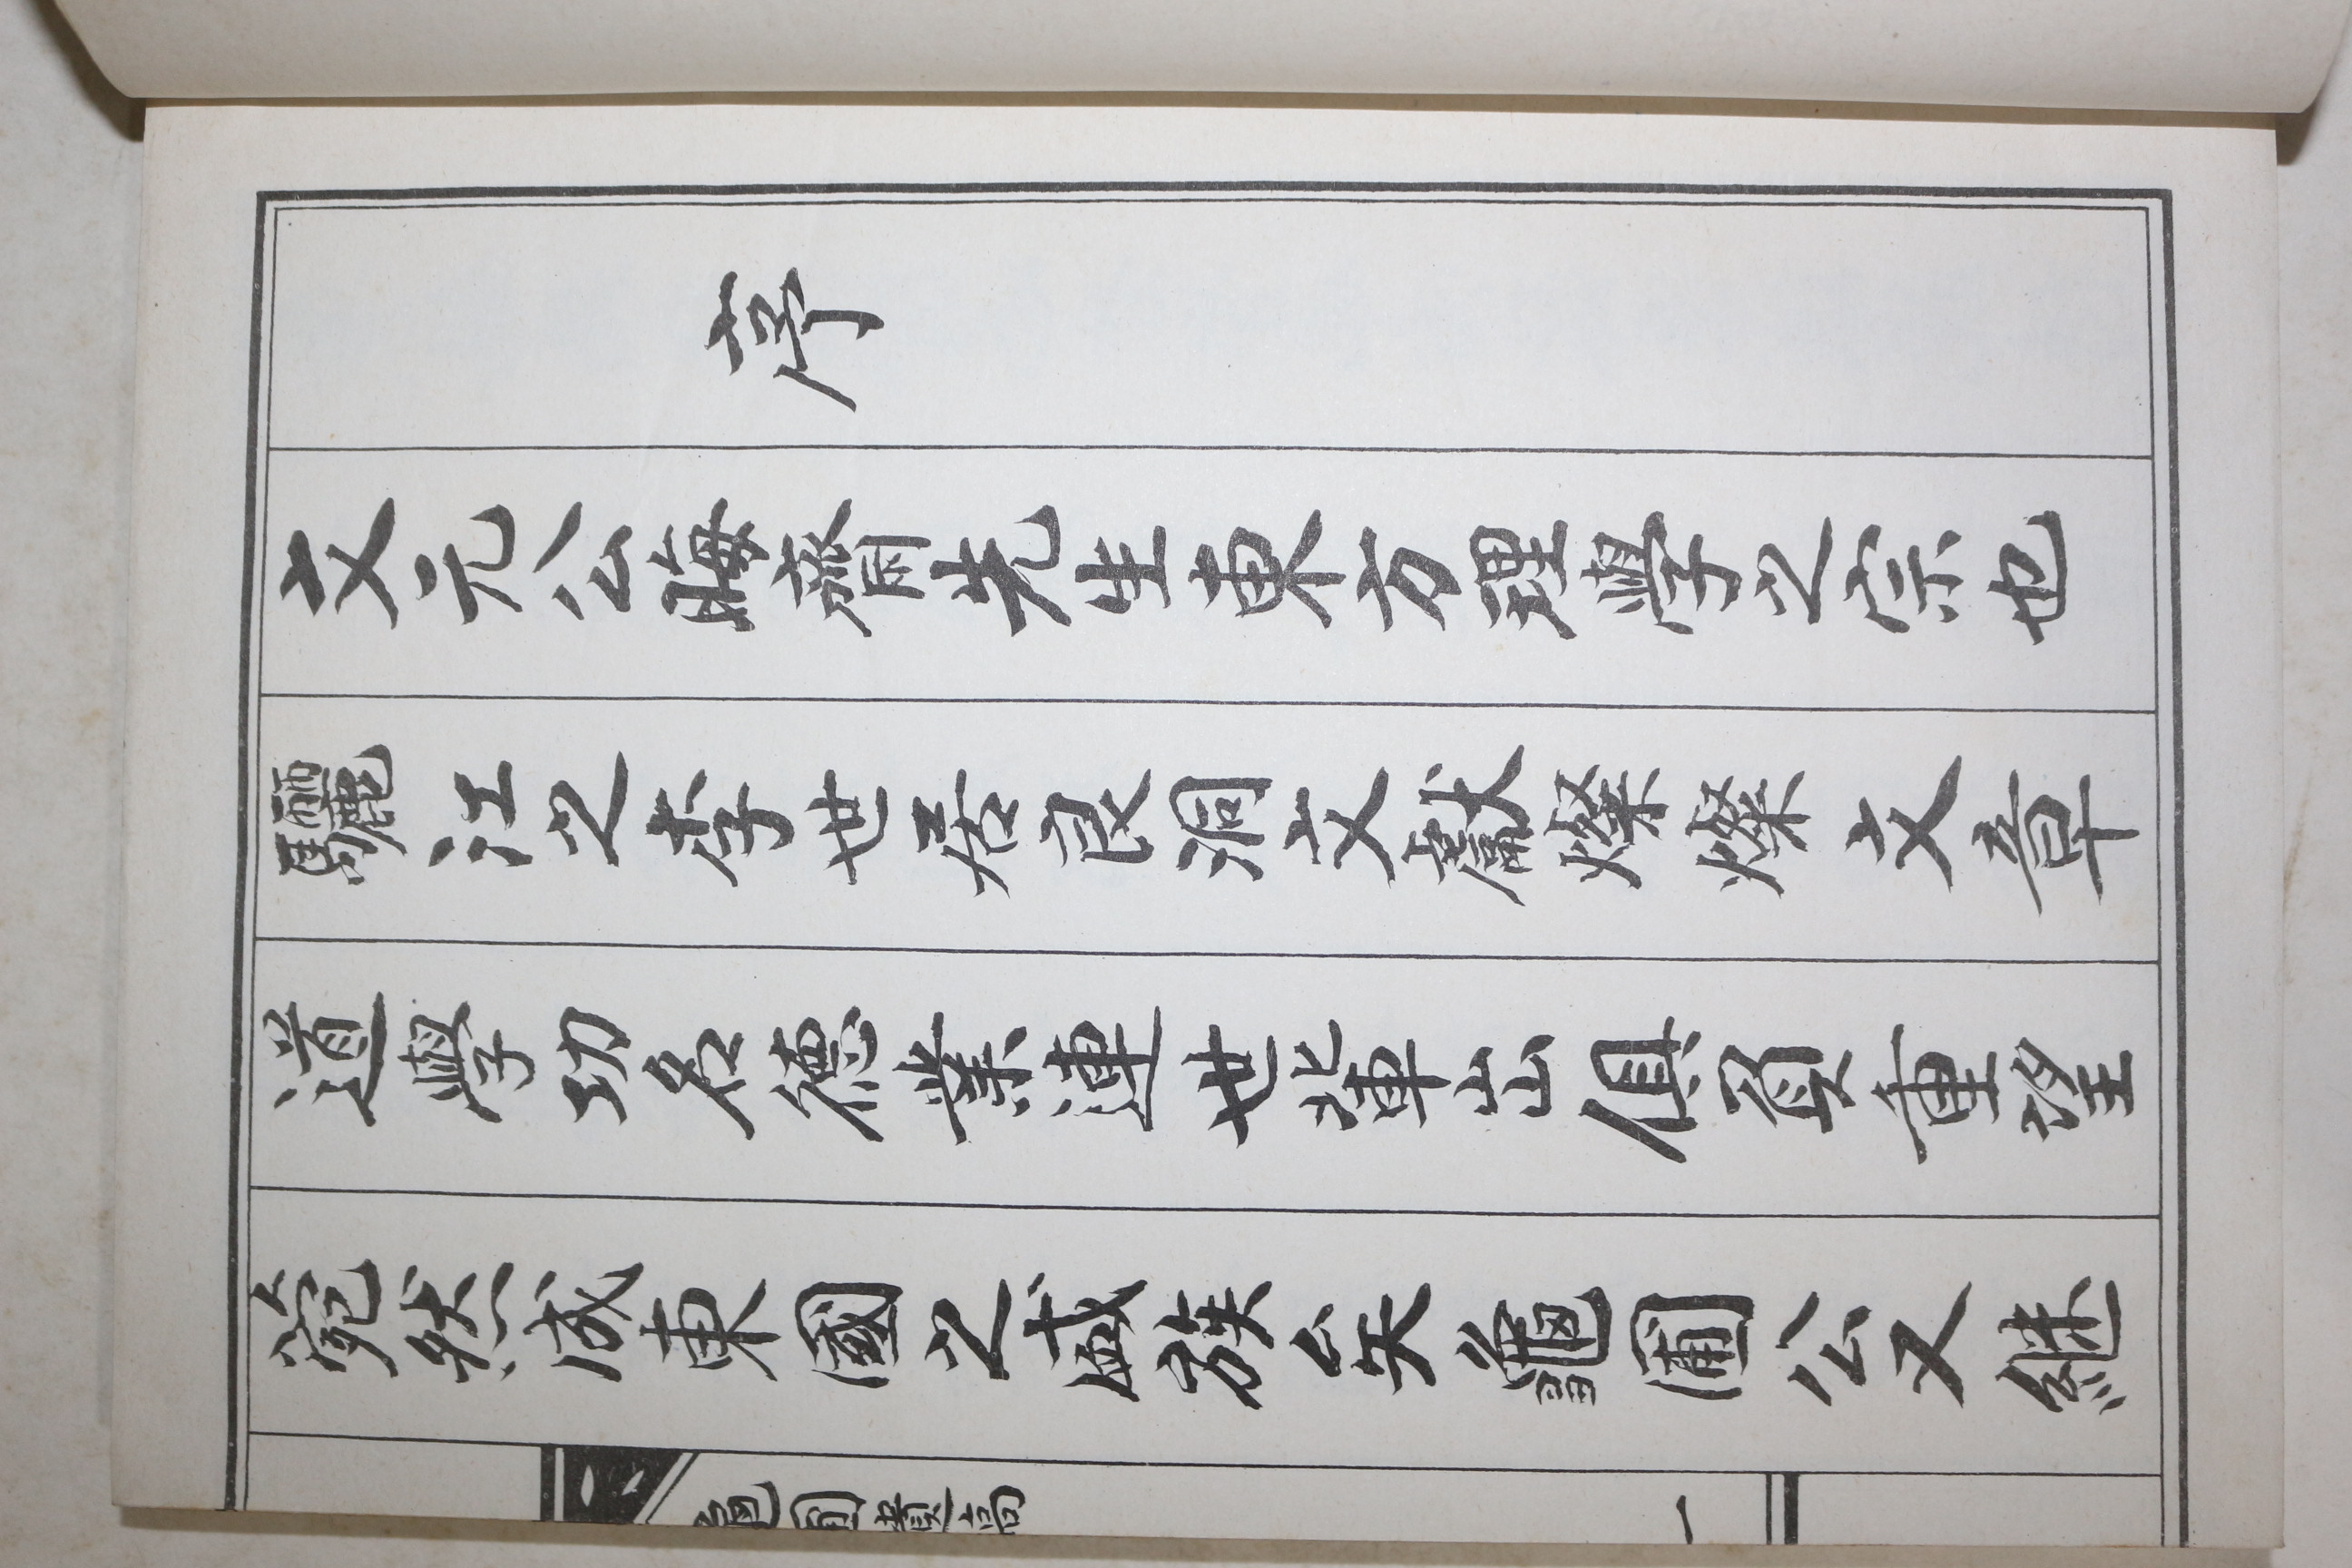 序
文元公晦齋先生東方理學之宗也
驪江之李世居良洞文獻燦燦文章
道學功名德業連世輩出俱負重望
菀然成東國之盛族矣龜圃公又継
龜圃遺高
一